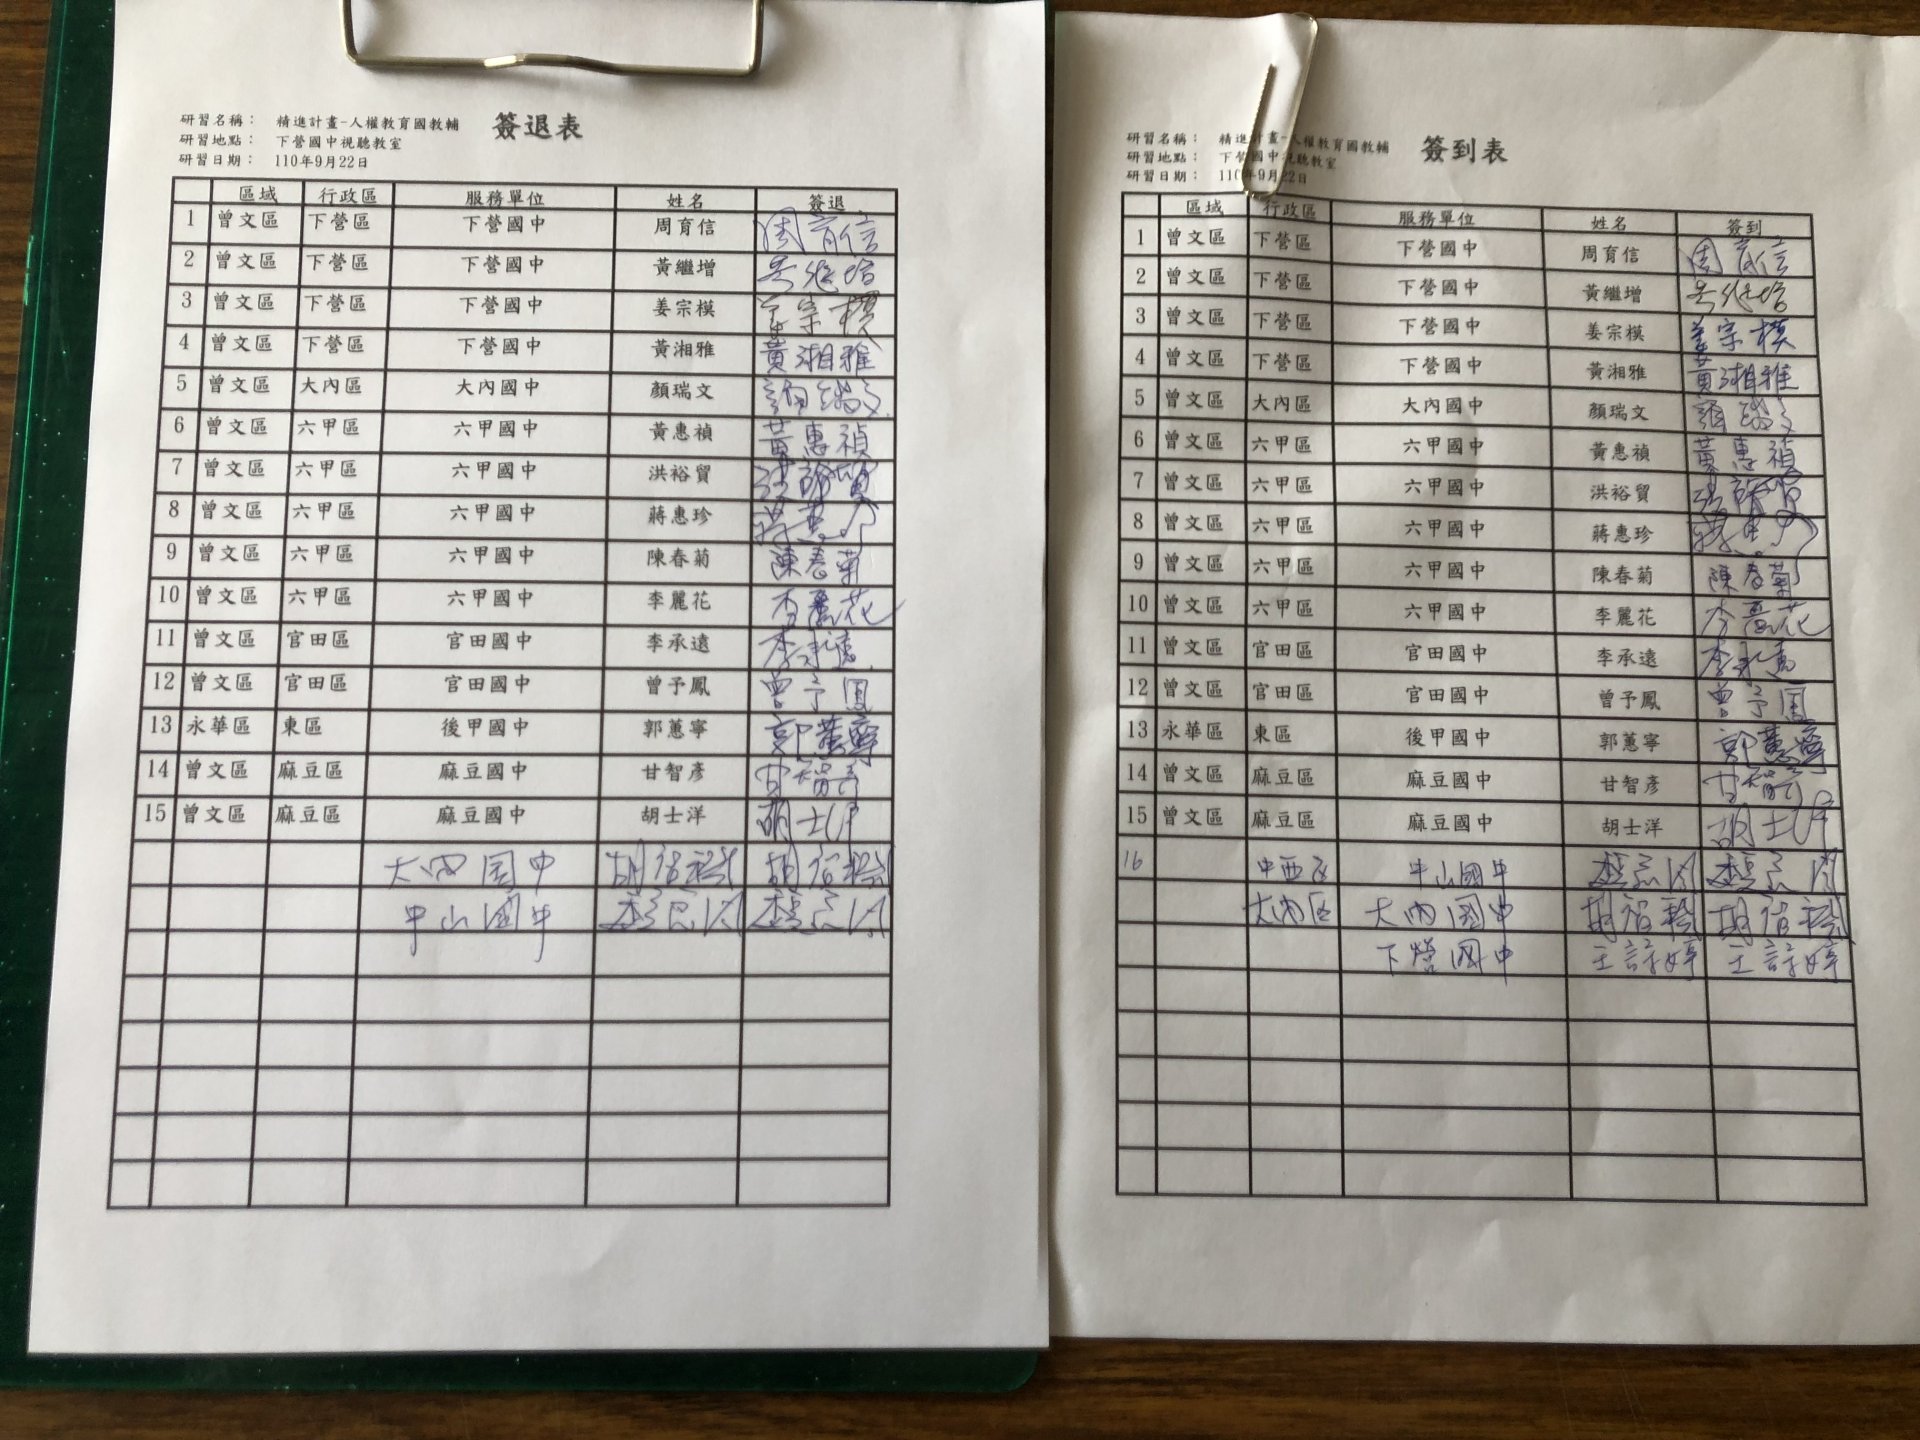 研習名稱： 精進計畫-人權教育國教輔 簽退表
研習地點： 下營國中視聽教室
研習日期： 110年9月22日
區域 行政區 服務單位 姓名 簽退
1 曾文區 下營區 下營國中 周育信 周育信
2 曾文區 下營區 下營國中 黃繼增
3 曾文區 下營區 下營國中 姜宗模 姜宗模
4 曾文區 下營區 下營國中 黃湘雅 黃湘雅
5 曾文區 大內區 大內國中 顏瑞文 顏瑞文
6 曾文區 六甲區 六甲國中 黃惠禎 黃惠禎
7 曾文區 六甲區 六甲國中 洪裕貿 洪裕貿
8 曾文區 六甲區 六甲國中 蔣惠珍 蔣惠珍
9 曾文區 六甲區 六甲國中 陳春菊 陳春菊
10 曾文區 六甲區 六甲國中 李麗花 李麗花
11 曾文區 官田區 官田國中 李承遠 李承遠
12 曾文區 官田區 官田國中 曾予鳳 曾予鳳
13 永華區 東區 後甲國中 郭蕙寧 郭蕙寧
14 曾文區 麻豆區 麻豆國中 甘智彥 甘智彥
15 曾文區 麻豆區 麻豆國中 胡士洋 胡士洋
大內国中
中山國中
研習名稱： 精進計畫-人權教育國教輔 簽到表
研習地點： 下營國中視聽教室
研習日期： 110年9月22日
區域 行政區 服務單位 姓名 簽到
1 曾文區 下營區 下營國中 周育信 周育信
2 曾文區 下營區 下營國中 黃繼增
3 曾文區 下營區 下營國中 姜宗模 姜宗模
4 曾文區 下營區 下營國中 黃湘雅 黃湘雅
5 曾文區 大內區 大內國中 顏瑞文 顏瑞文
6 曾文區 六甲區 六甲國中 黃惠禎 黃惠禎
7 曾文區 六甲區 六甲國中 洪裕貿 洪裕貿
8 曾文區 六甲區 六甲國中 蔣惠珍 蔣惠珍
9 曾文區 六甲區 六甲國中 陳春菊 陳春菊
10 曾文區 六甲區 六甲國中 李麗花 李麗花
11 曾文區 官田區 官田國中 李承遠 李承遠
12 曾文區 官田區 官田國中 曾予鳳 曾予鳳
13 永華區 東區 後甲國中 郭蕙寧 郭蕙寧
14 曾文區 麻豆區 麻豆國中 甘智彥 甘智彥
15 曾文區 麻豆區 麻豆國中 胡士洋 胡士洋
16 中西区 中山國中
大內区 大內國中
下營國中 王詩婷 王詩婷